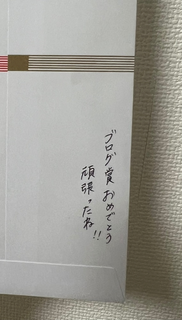 ブログ賞おめでとう
頑張ったね!!